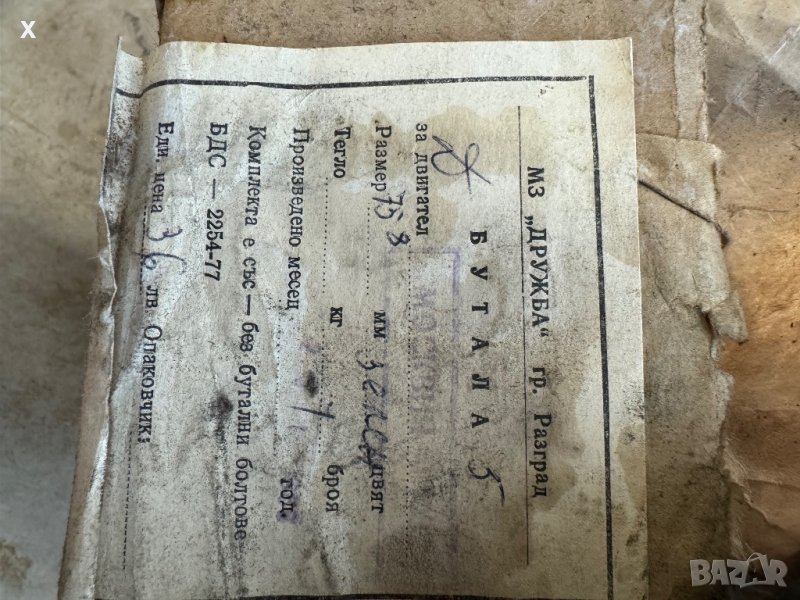 x
МЗ „ДРУЖБА“ гр. Разград
БУТАЛА 5
за двигател
Размер 75 8 мм зелен цвят
Тегло кг броя
Произведено месец год.
Комплекта е със — без бутални болтове
БДС — 2254-77
Еди. цена 36 лв Опаковчик:
BAZAR